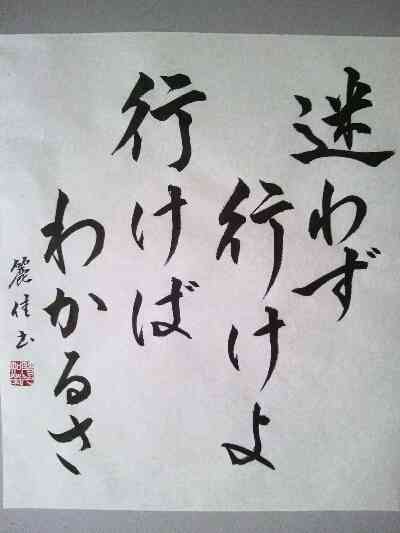 迷わず
行けよ
行けば
わかるさ
麗佳書